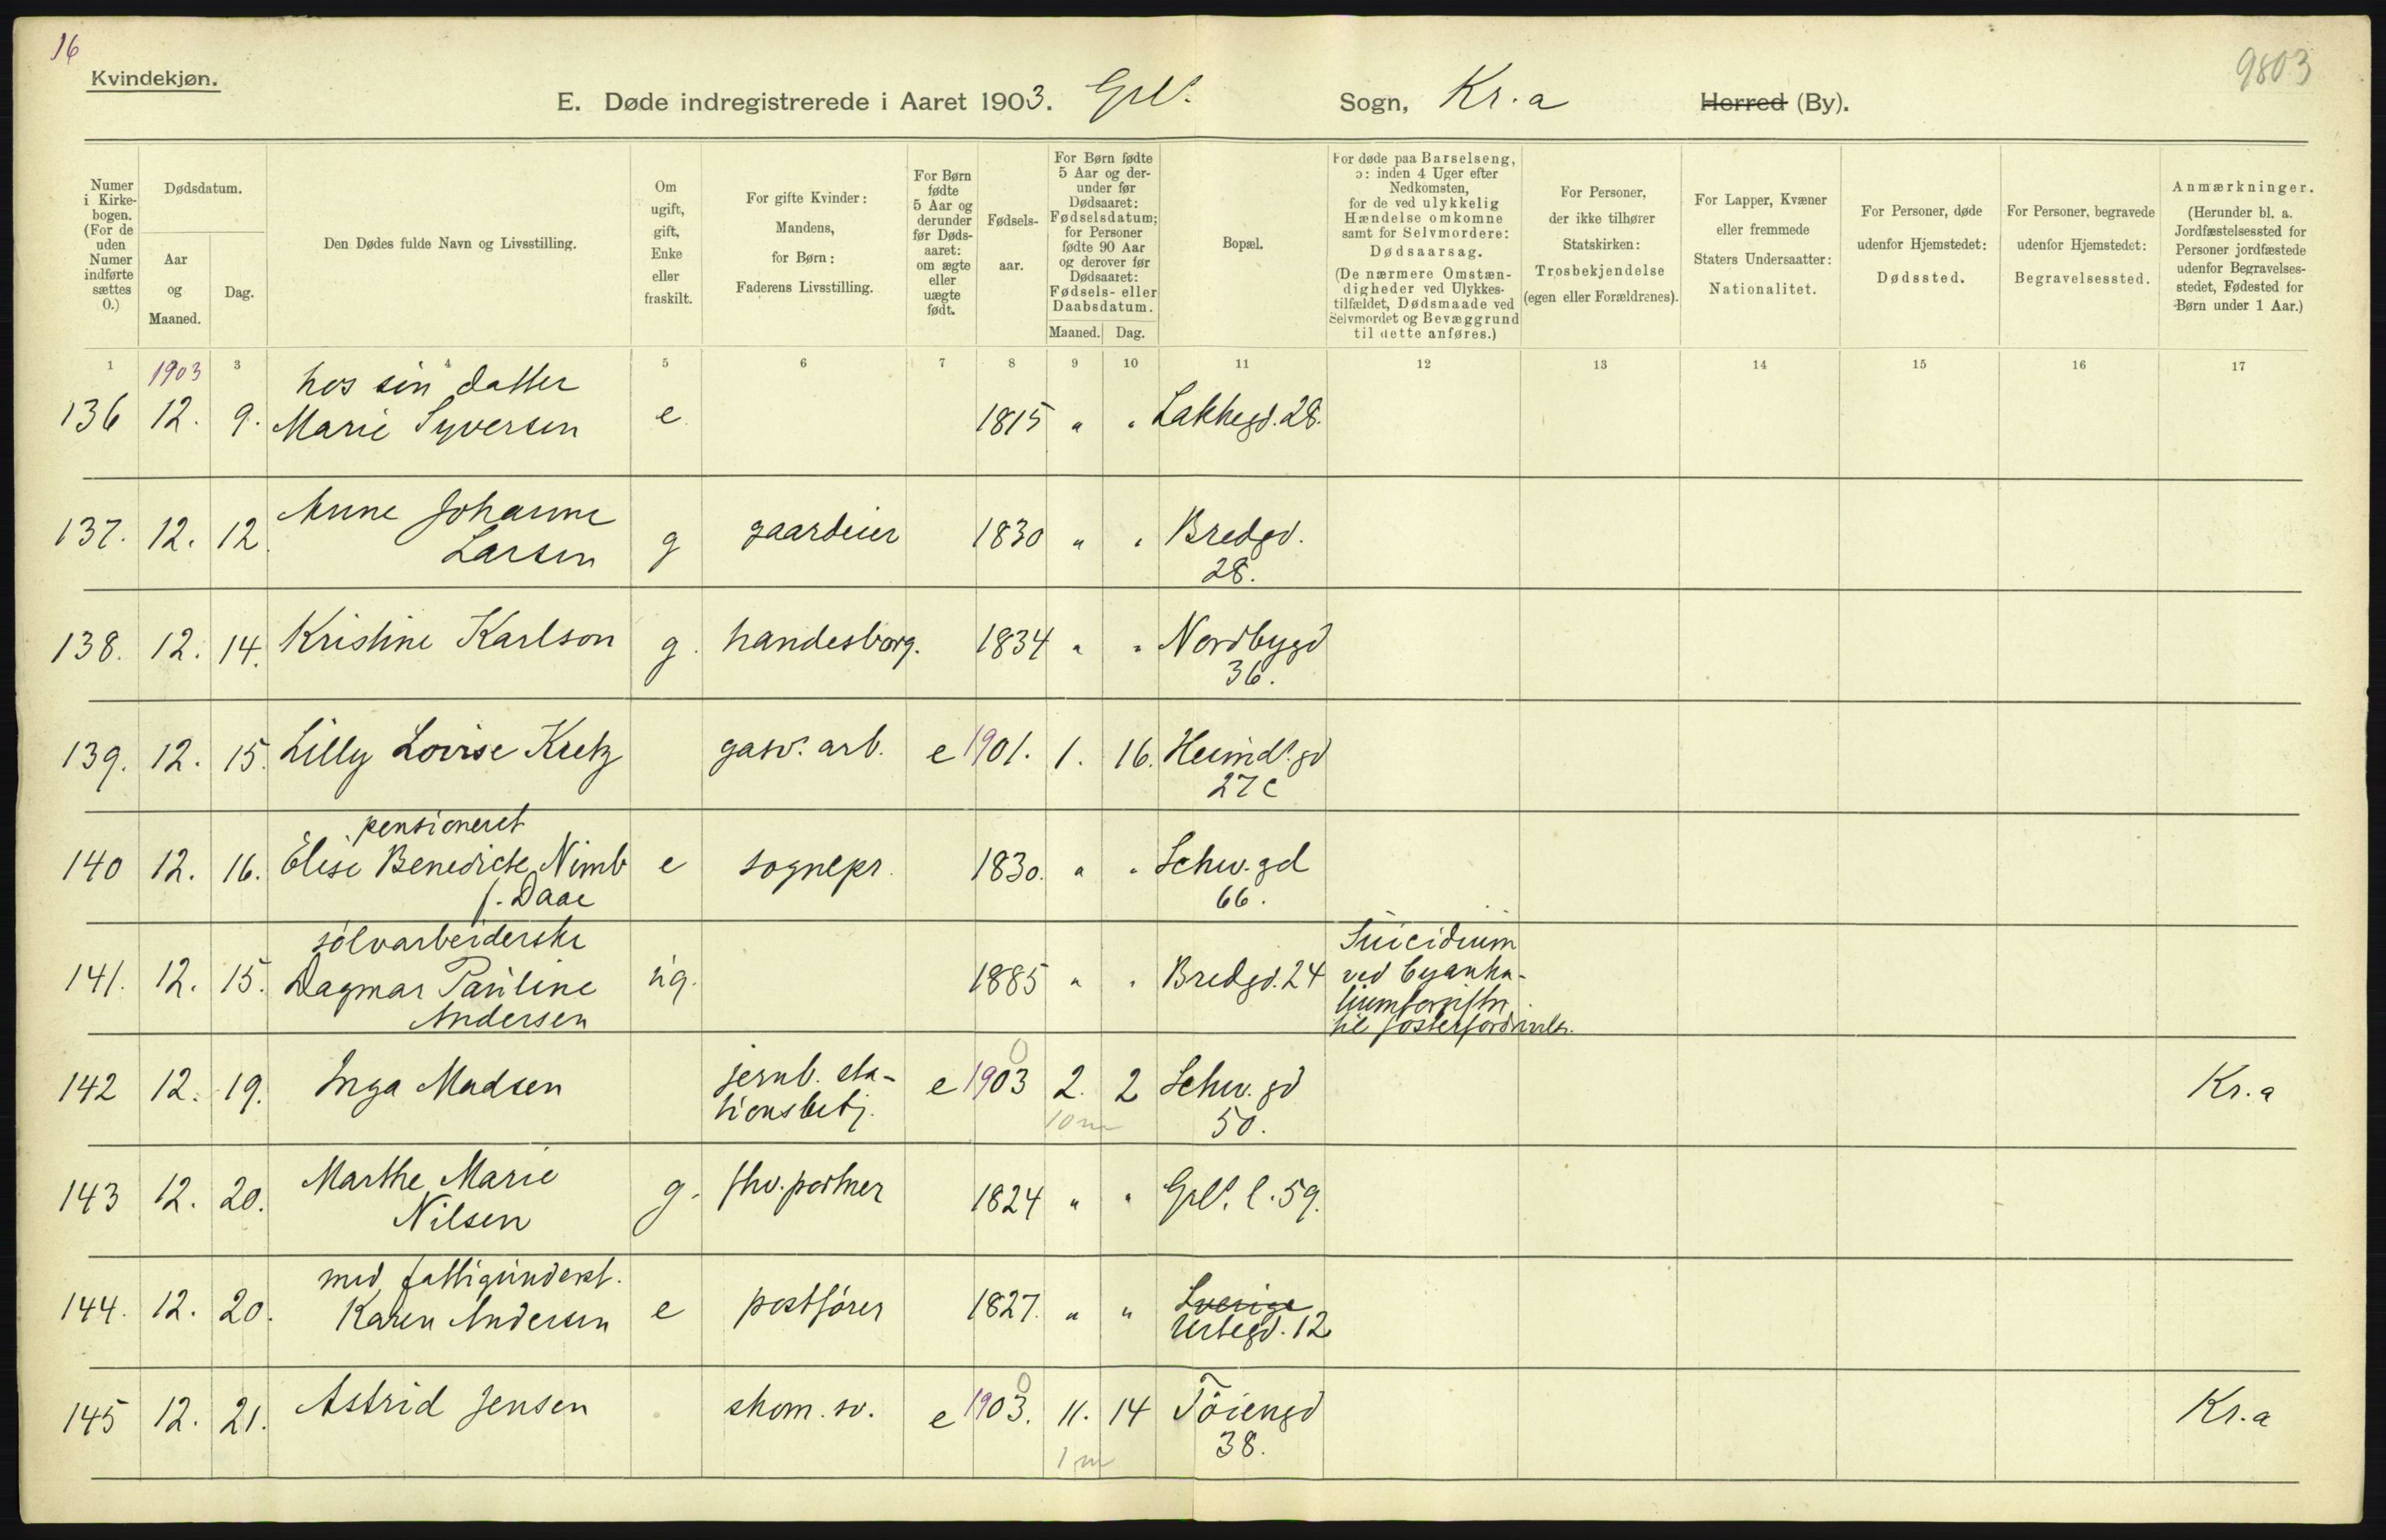 16
Kvindekjøn.
9803
E. Døde indregistrerede i Aaret 1903. Grl. Sogn, Kr.a Herred (By).
Numer i Kirke-bogen. (For de uden Numer indførte sættes 0.)
Dødsdatum.
Aar og Maaned.
Dag.
Den Dødes fulde Navn og Livsstilling.
Om ugift, gift, Enke eller fraskilt.
For gifte Kvinder: Mandens, for Børn: Faderens Livsstilling.
For Børn fødte 5 Aar og derunder før Døds-aaret: om ægte eller uægte født.
Fødsels-aar.
For Børn fødte 5 Aar og der-under før Dødsaaret: Fødselsdatum; for Personer fødte 90 Aar og derover før Dødsaaret: Fødsels- eller Daabsdatum.
Maaned. Dag.
Bopæl.
For døde paa Barselseng, ɔ: inden 4 Uger efter Nedkomsten, for de ved ulykkelig Hændelse omkomne samt for Selvmordere: Dødsaarsag. (De nærmere Omstæn-digheder ved Ulykkes-tilfældet, Dødsmaade ved Selvmordet og Bevæggrund til dette anføres.)
For Personer, der ikke tilhører Statskirken: Trosbekjendelse (egen eller Forældrenes).
For Lapper, Kvæner eller fremmede Staters Undersaatter: Nationalitet.
For Personer, døde udenfor Hjemstedet: Dødssted.
For Personer, begravede udenfor Hjemstedet: Begravelsessted.
Anmærkninger. (Herunder bl. a. Jordfæstelsessted for Personer jordfæstede udenfor Begravelses-stedet, Fødested for Børn under 1 Aar.)
1 3 4 5 6 7 8 9 10 11 12 13 14 15 16 17
1903
hos sin datter
136 12. 9. Marie Syversen e 1815 " " Lakkegd. 28.
Anne Johanne
137. 12. 12. Larsen g gaardeier 1830 " " Bredgd.
28.
138. 12. 14. Kristine Karlson g. handesborg. 1834 " " Nordbygd
36.
139. 12. 15. Lilly Lovise Kretz gasv. arb. e 1901. 1. 16. Heimd. gd
27 c
pensioneret
140 12. 16. Elise Benedicte Nimb e sognepr. 1830. " " Schw. gd
f. Daae 66.
sølvarbeiderske Suicidium
141. 12. 15. Dagmar Pauline ug. 1885 " " Bredgd. 24 ved cyanka-
Andersen liumforgiftn.
til fosterfordrivels.
142 12. 19. Inga Madsen jernb. sta- e 1903 0 2. 2 Schw. gd Kr.a
tionsbetj. 10 m 50.
Marthe Marie
143 12. 20. Nilsen g. fhv. portner 1824 " " Grl. l. 59.
med fattigunderst. Sverige
144. 12. 20. Karen Andersen e postfører 1827. " " Urtegd. 12
145 12. 21. Astrid Jensen skom. sv. e 1903. 0 11. 14 Töiengd Kr.a
1 m 38.